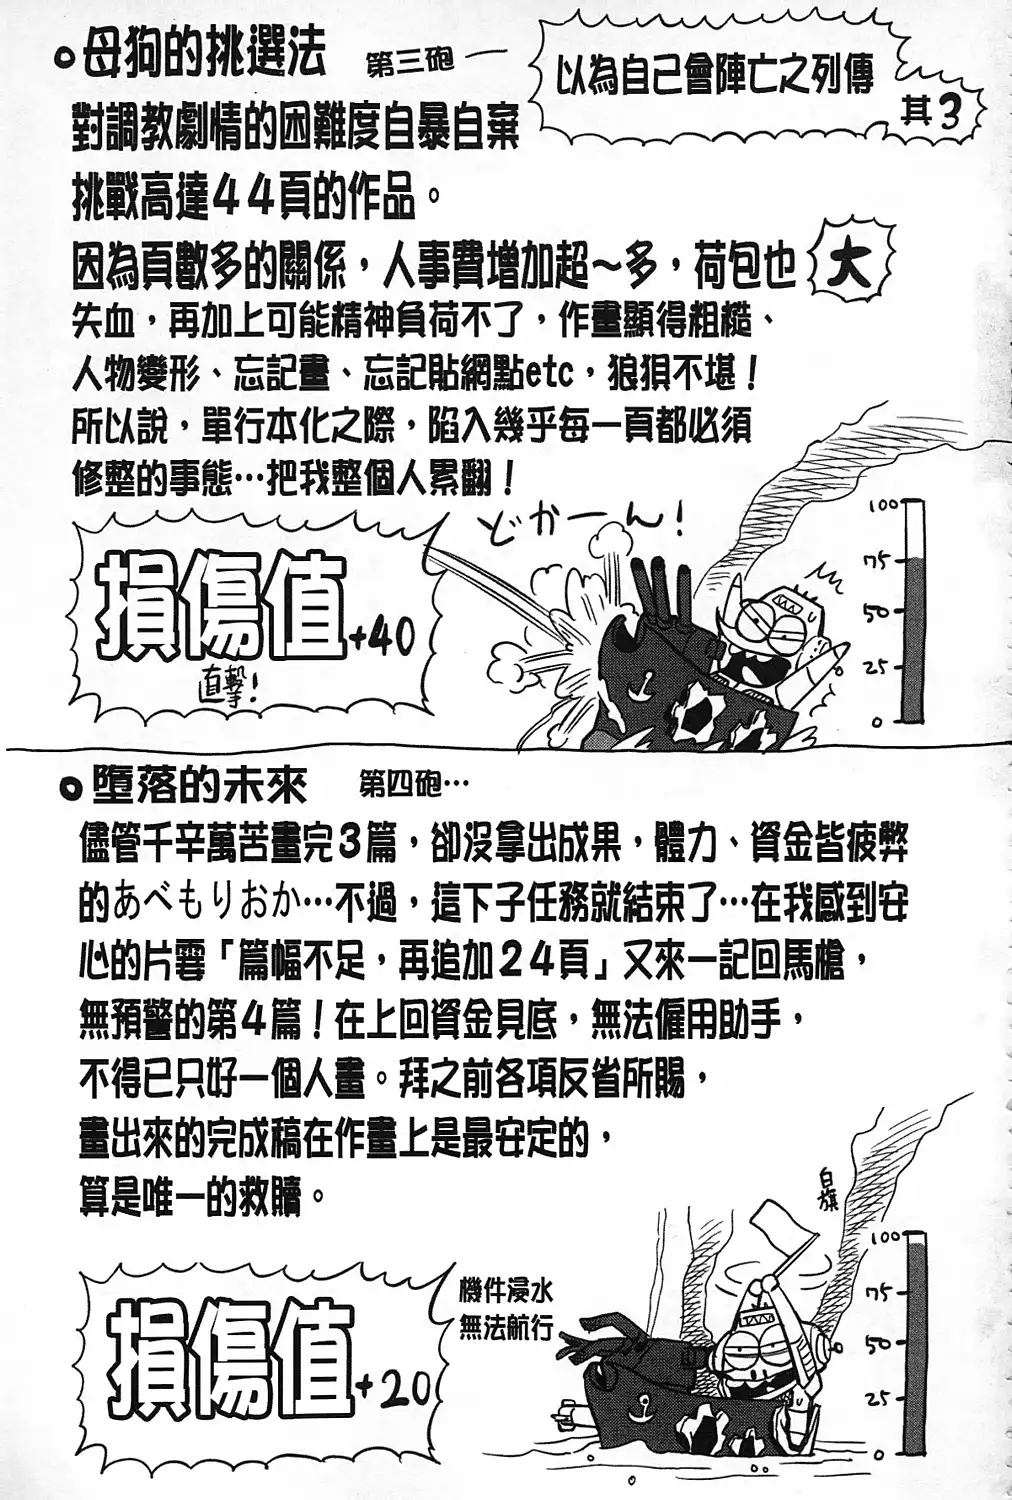 以為自己會陣亡之列傳
其3
母狗的挑選法 第三砲一
對調教劇情的困難度自暴自棄
挑戰高達44頁的作品。
因為頁數多的關係，人事費增加超～多，荷包也大
失血，再加上可能精神負荷不了，作畫顯得粗糙、
人物變形、忘記畫、忘記貼網點etc，狼狽不堪！
所以說，單行本化之際，陷入幾乎每一頁都必須
修整的事態…把我整個人累翻！
どかーん！
損傷值+40
直擊！
100
75
50
25
0
墮落的未來 第四砲…
儘管千辛萬苦畫完3篇，卻沒拿出成果，體力、資金皆疲弊
的あべもりおか…不過，這下子任務就結束了…在我感到安
心的片霎「篇幅不足，再追加24頁」又來一記回馬槍，
無預警的第4篇！在上回資金見底，無法僱用助手，
不得已只好一個人畫。拜之前各項反省所賜，
畫出來的完成稿在作畫上是最安定的，
算是唯一的救贖。
白旗
機件浸水
無法航行
損傷值+20
100
75
50
25
0